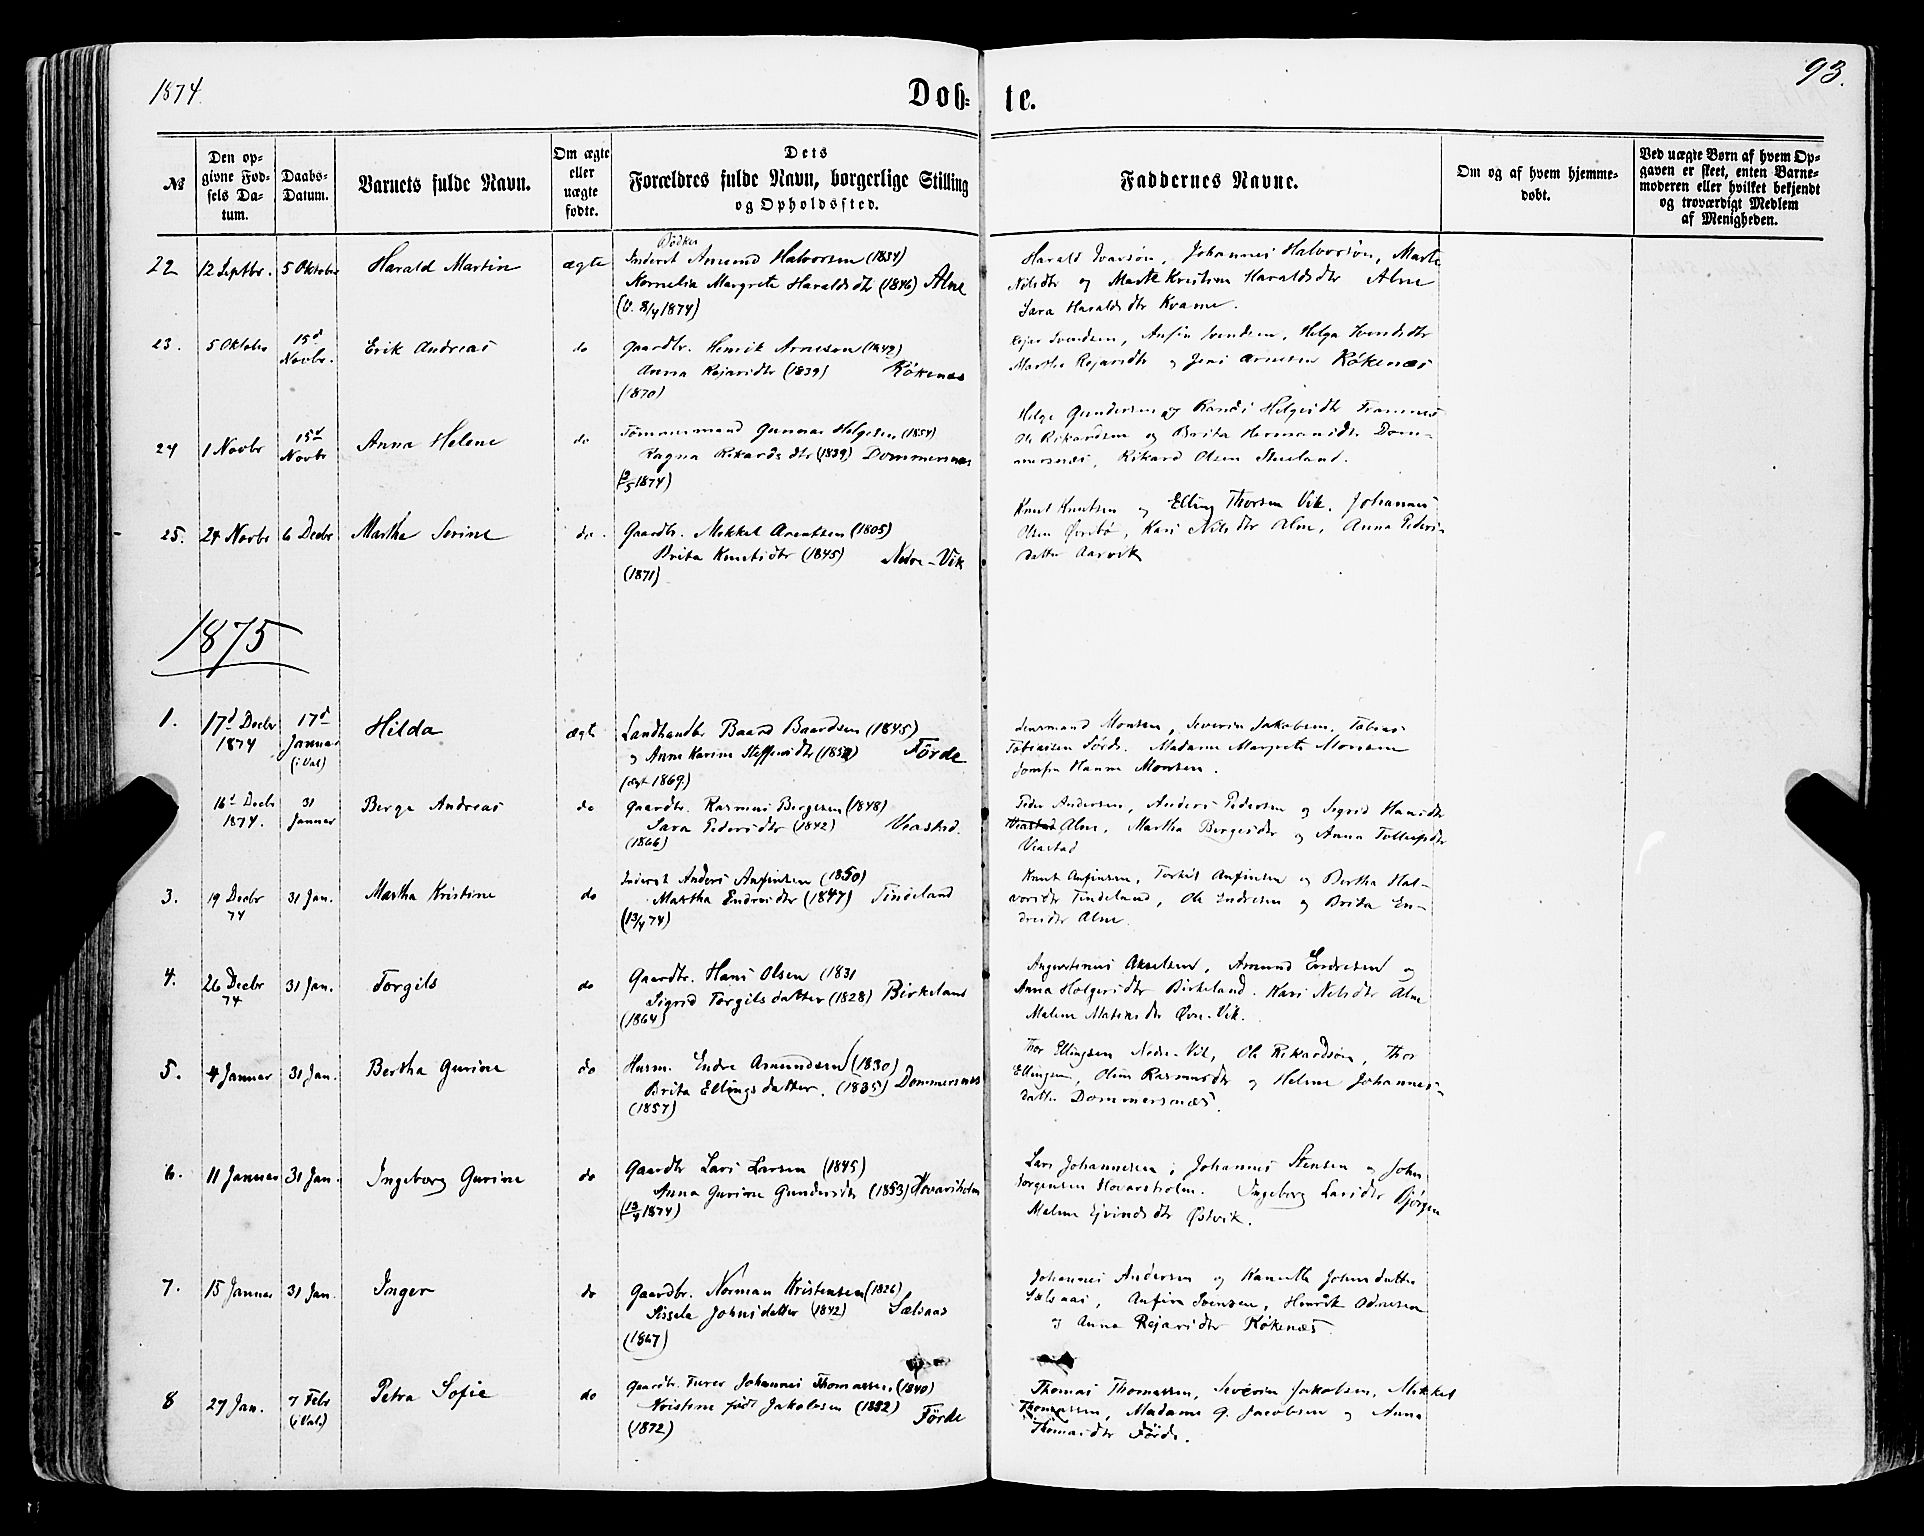 1874.
Døb-
te.
93.
№
Den op-
givne Fød-
sels Da-
tum.
Daabs-
Datum.
Barnets fulde Navn.
Om ægte
eller
uægte
fødte.
Dets
Forældres fulde Navn, borgerlige Stilling
og Opholdssted.
Faddernes Navne.
Om og af hvem hjemme-
døbt.
Ved uægte Børn af hvem Op-
gaven er skeet, enten Barne-
moderen eller hvilket bekjendt
og troværdigt Medlem
af Menigheden.
22
12 Septbr.
5 Oktober
Harald Martin
ægte
Bødker
Inderst Amund Halvorsen (1834)
Kornelia Margrete Haraldsdtr (1846) Alne
(V. 8/4 1874)
Harald Ivarsøn, Johannes Halvorsøn, Marte
Nilsdtr og Marte Kristina Haraldsdtr Alne
Sara Haraldsdtr Kvame.
23.
5 Oktober
15d
Novbr.
Erik Andreas
do
Gaardbr. Henrik Arnesen (1842)
Anna Rejarsdtr (1839) Røkenæs
(1870)
Rejar Svendsen, Anfin Svendsen, Helga Svendsdtr
Martha Rejarsdtr og Jens Arnesen Røkenæs
24
1 Novbr
15d
Novbr
Anna Helene
do
Tømmermand Gunnar Helgesen (1854)
Ragna Rikardsdtr (1839) Dommersnæs
(3/5 1874)
Helge Gundersen og Randi Helgesdtr
Ole Rikardsen og Brita Hermansdtr Dom-
mersnæs, Rikard Olsen
25.
24 Novbr
6 Decbr
Martha Serine
do.
Gaardbr. Mikkel Arentsen (1805)
Brita Knutsdtr (1845) Nedre-Vik
(1871)
Knut Knutsen og Elling Thorsen Vik. Johannes
Olsen Øvrebø, Kari Nilsdtr Alne, Anna Peders-
datter Aarvik
1875
1.
17d Decbr
1874
17d
Januar
(i Vats)
Hilda
ægte
Landhandlr Baard Baardsen (1845)
og Anne Karine Steffensdtr (1850) Førde
(ægt. 1869.)
Lensmand Monsen, Severin Jakobsen, Tobias
Tobiassen Førde. Madame Margrete Monsen
Jomfru Hanna Monsen.
16d Decbr
1874.
31
Januar
Berge Andreas
do
Gaardbr. Rasmus Bergesen (1848)
Sara Pedersdtr (1842) Veastad.
(1866)
Peder Andersen, Anders Pedersen og Sigrid Hansdtr
Alne, Martha Bergesdtr og Anna Tollefsdtr
Veastad
3.
19 Decbr
74
31 Jan.
Martha Kristine
do
Inderst Anders Anfinsen (1850)
Martha Endresdtr (1847) Tindeland
(13/4 74)
Knut Anfinsen, Torkil Anfinsen og Bertha Hal-
vorsdtr Tindeland, Ole Endresen og Brita En-
dresdtr Alne.
4.
26 Decbr
74
31 Jan.
Torgils
do
Gaardbr. Hans Olsen (1831
Sigrid Torgilsdatter (1828) Birkeland
(1864)
Akselsen, Amund Endresen og
Anna Holgersdtr Birkeland. Kari Nelsdtr Alne
Malene Øvre-Vik.
5.
4 Januar
31 Jan.
Bertha Gurine
do
Husm. Endre Amundsen (1830)
Brita Ellingsdatter. (1835) Dommersnæs
(1857)
Thor Ellingsen Nedre-Vik, Ole Rikardsøn, Thor
Ellingsen, Oline Rasmusdtr og Helene Johannes-
datter Dommersnæs.
6.
11 Januar
31 Jan.
Ingeborg Gurine
do
Gaardbr Lars Larsen (1845)
Anna Gurine Gundersdtr (1853) Hovarsholm
(13/4 1874)
Lars Johannesen, Johannes Stensen og John
Jørgensen Hovarsholm. Ingeborg Larsdtr Bjørgen
Malene Ejvindsdtr Østvik.
7.
15 Januar
31 Jan.
Inger
do
Gaardbr. Norman Kristensen (1826)
Sissela Johnsdatter (1842) Sælsaas
(1867)
Johannes Andersen og Johnsdatter
Sælsaas, Anfin Svensen, Henrik
og Anna Rejarsdtr Røkenæs.
8
27 Jan.
7 Febr
(i Vats)
Petra Sofie
do
Gaardbr. Furer Johannes Thomassen (1840)
Kristine født Jakobsen (1852) Førde
(1872)
Thomas Thomassen, Severin Jakobsen, Mikkel
Thomassen, Madame G. Jacobsen og Anna
Thomasdtr Førde.